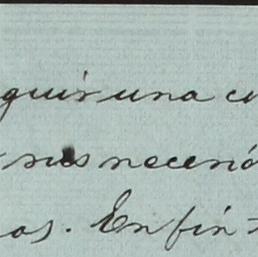 quir una cu
sus necesi
os. En fin